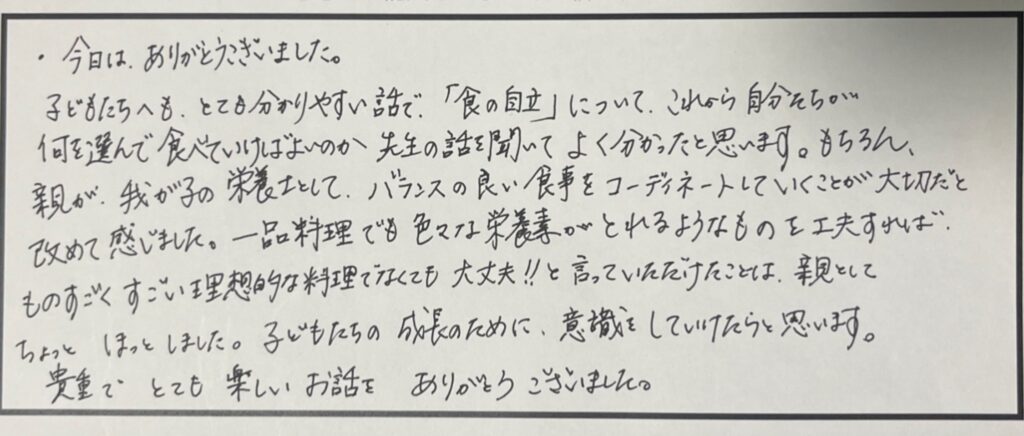 ・今日は、ありがとうございました。
子どもたちへも、とても分かりやすい話で、「食の自立」について、これから自分たちが
何を選んで食べていけばよいのか 先生の話を聞いて よく分かったと思います。もちろん、
親が、我が子の栄養士として、バランスの良い食事をコーディネートしていくことが大切だと
改めて感じました。一品料理でも色々な栄養素がとれるようなものを工夫すれば、
ものすごくすごい理想的な料理でなくても大丈夫!!と言っていただけたことは、親として
ちょっと ほっとしました。子どもたちの成長のために、意識をしていけたらと思います。
貴重で とても楽しいお話を ありがとうございました。